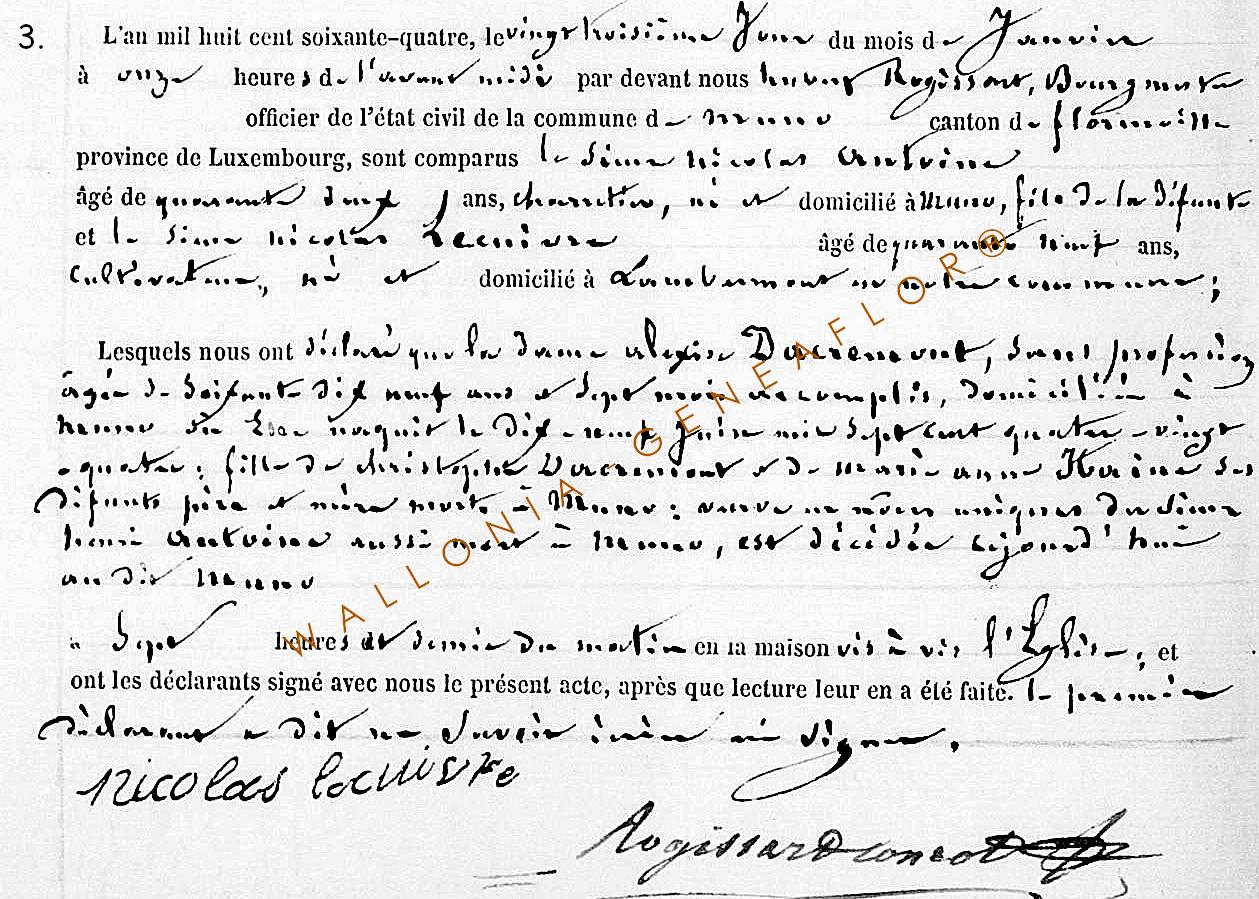 3. L'an mil huit cent soixante-quatre, le vingt troisième Jour du mois de Janvier
à onze heures de l'avant midi par devant nous hubert Rogissart, Bourgmestre
officier de l'état civil de la commune de muno canton de florenville
province de Luxembourg, sont comparus le Sieur nicolas Antoine
âgé de quarante deux ans, charretier, né et domicilié à Muno, fils de la défunte
et le Sieur nicolas Lecuivre âgé de quarante neuf ans,
cultivateur, né et domicilié à Lambermont en notre commune;
Lesquels nous ont déclaré que la dame alexise Dacremont, Sans profession
âgée de Soixante dix neuf ans et Sept mois accomplis, domiciliée à
muno où Elle naquit le dix-neuf Juin mil Sept cent quatre-vingt
-quatre; fille de christophe Dacremont et de marie anne Haine Ses
défunts père et mère morts à Muno; veuve en nôces uniques du Sieur
henri Antoine aussi mort à muno, est décédée aujourd'hui
au dit muno
à Sept heures et demie du matin en la maison vis à vis l'Eglise; et
ont les déclarants signé avec nous le présent acte, après que lecture leur en a été faite. le premier
déclarant a dit ne Savoir écrire ni Signer.
Nicolas lecuivre
Rogissart
WALLONIA-GENEAFLOR®